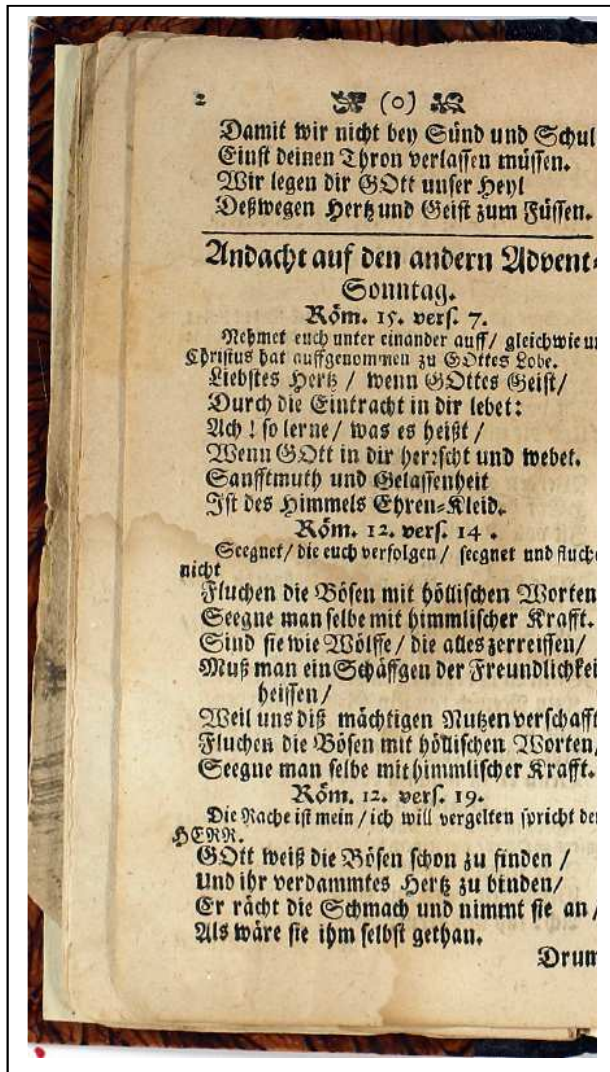 2 (o)
Damit wir nicht bey Sünd und Schul
Einst deinen Thron verlassen müssen.
Wir legen dir GOtt unser Heyl
Deßwegen Hertz und Geist zum Füssen.
Andacht auf den andern Advent-
Sonntag.
Röm. 15. vers. 7.
Nehmet euch unter einander auff/ gleichwie un
Christus hat auffgenommen zu GOttes Lobe.
Liebstes Hertz / wenn GOttes Geist/
Durch die Eintracht in dir lebet:
Ach ! so lerne/ was es heißt /
Wenn GOtt in dir herrscht und webet.
Sanfftmuth und Gelassenheit
Ist des Himmels Ehren-Kleid.
Röm. 12. vers. 14 .
Seegnet/ die euch verfolgen / seegnet und fluche
nicht
Fluchen die Bösen mit höllischen Worten
Seegne man selbe mit himmlischer Krafft.
Sind sie wie Wölffe/ die alles zerreissen/
Muß man ein Schäffgen der Freundlichkei
heissen/
Weil uns diß mächtigen Nutzen verschafft
Fluchen die Bösen mit höllischen Worten,
Seegne man selbe mit himmlischer Krafft.
Röm. 12. vers. 19.
Die Rache ist mein / ich will vergelten spricht der
HERR.
GOtt weiß die Bösen schon zu finden /
Und ihr verdammtes Hertz zu binden/
Er rächt die Schmach und nimmt sie an /
Als wäre sie ihm selbst gethan.
Drum